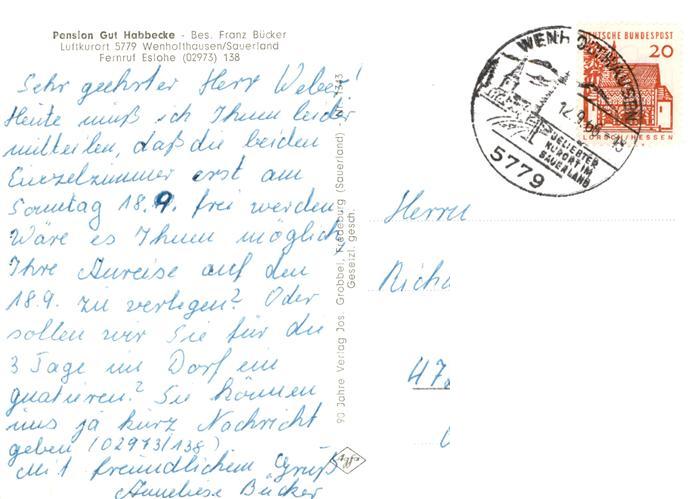 Pension Gut Habbecke - Bes. Franz Bücker
Luftkurort 5779 Wenholthausen/Sauerland
Fernruf Eslohe (02973) 138
Sehr geehrter Herr Weber!
Heute muß ich Ihnen leider
mitteilen, daß die beiden
Einzelzimmer erst am
Sonntag 18.9. frei werden.
Wäre es Ihnen möglich,
Ihre Anreise auf den
18.9. zu verlegen? Oder
sollen wir Sie für die
3 Tage im Dorf ein
quatieren? Sie können
uns ja kurz Nachricht
geben (02973/138)
Mit freundlichem Gruß
Anneliese Bücker
90 Jahre Verlag Jos. Grobbel, Fredeburg (Sauerland)
Gesetzl. gesch.
Agfa
WENHOLTHAUSEN
12.9.66
BELIEBTER
KURORT IM
SAUERLAND
5779
DEUTSCHE BUNDESPOST
20
LORSCH/HESSEN
Herrn
Richa
47